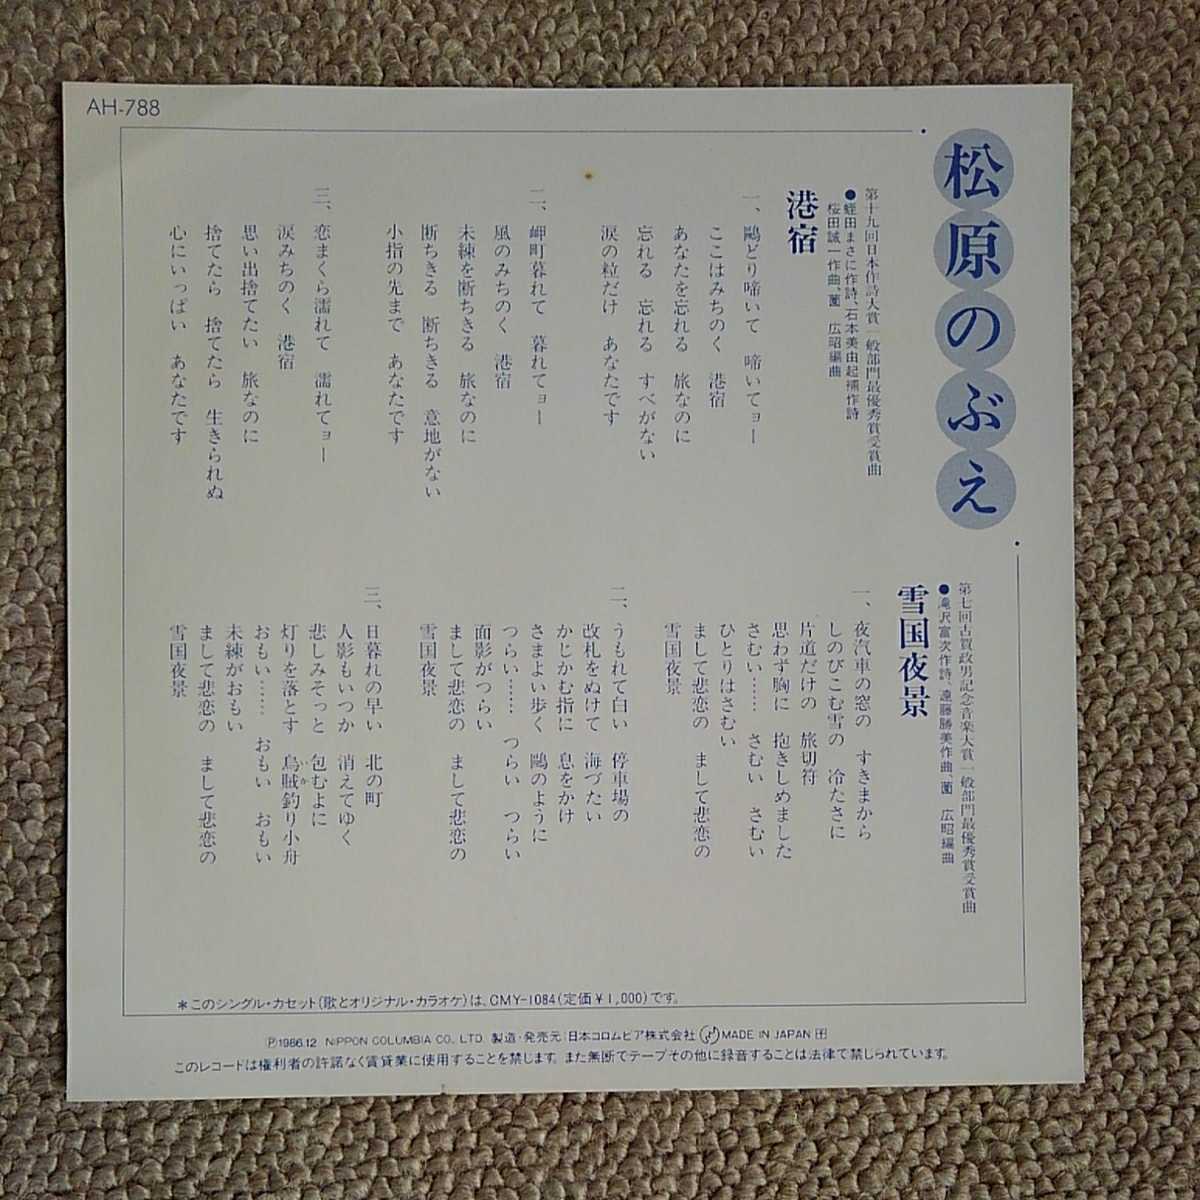 AH-788
松原のぶえ
第十九回日本作詩大賞一般部門最優秀賞受賞曲
●蛭田まさに作詩、石本美由起補作詩
桜田誠一作曲、薗 広昭編曲
港宿
一、鷗どり啼いて 啼いてョー
ここはみちのく 港宿
あなたを忘れる 旅なのに
忘れる 忘れる すべがない
涙の粒だけ あなたです
二、岬町暮れて 暮れてョー
風のみちのく 港宿
未練を断ちきる 旅なのに
断ちきる 断ちきる 意地がない
小指の先まで あなたです
三、恋まくら濡れて 濡れてョー
涙みちのく 港宿
思い出捨てたい 旅なのに
捨てたら 捨てたら 生きられぬ
心にいっぱい あなたです
第七回古賀政男記念音楽大賞一般部門最優秀賞受賞曲
●滝沢富次作詩、遠藤勝美作曲、薗 広昭編曲
雪国夜景
一、夜汽車の窓の すきまから
しのびこむ雪の 冷たさに
片道だけの 旅切符
思わず胸に 抱きしめました
さむい…… さむい さむい
ひとりはさむい
まして悲恋の まして悲恋の
雪国夜景
二、うもれて白い 停車場の
改札をぬけて 海づたい
かじかむ指に 息をかけ
さまよい歩く 鷗のように
つらい…… つらい つらい
面影がつらい
まして悲恋の まして悲恋の
雪国夜景
三、日暮れの早い 北の町
人影もいつか 消えてゆく
悲しみそっと 包むよに
灯りを落とす 烏賊釣り小舟
いか
おもい…… おもい おもい
未練がおもい
まして悲恋の まして悲恋の
雪国夜景
＊このシングル・カセット(歌とオリジナル・カラオケ)は、CMY-1084(定価￥1,000)です。
Ⓟ1986.12 NIPPON COLUMBIA CO., LTD. 製造・発売元/日本コロムビア株式会社 MADE IN JAPAN
このレコードは権利者の許諾なく賃貸業に使用することを禁じます。また無断でテープその他に録音することは法律で禁じられています。